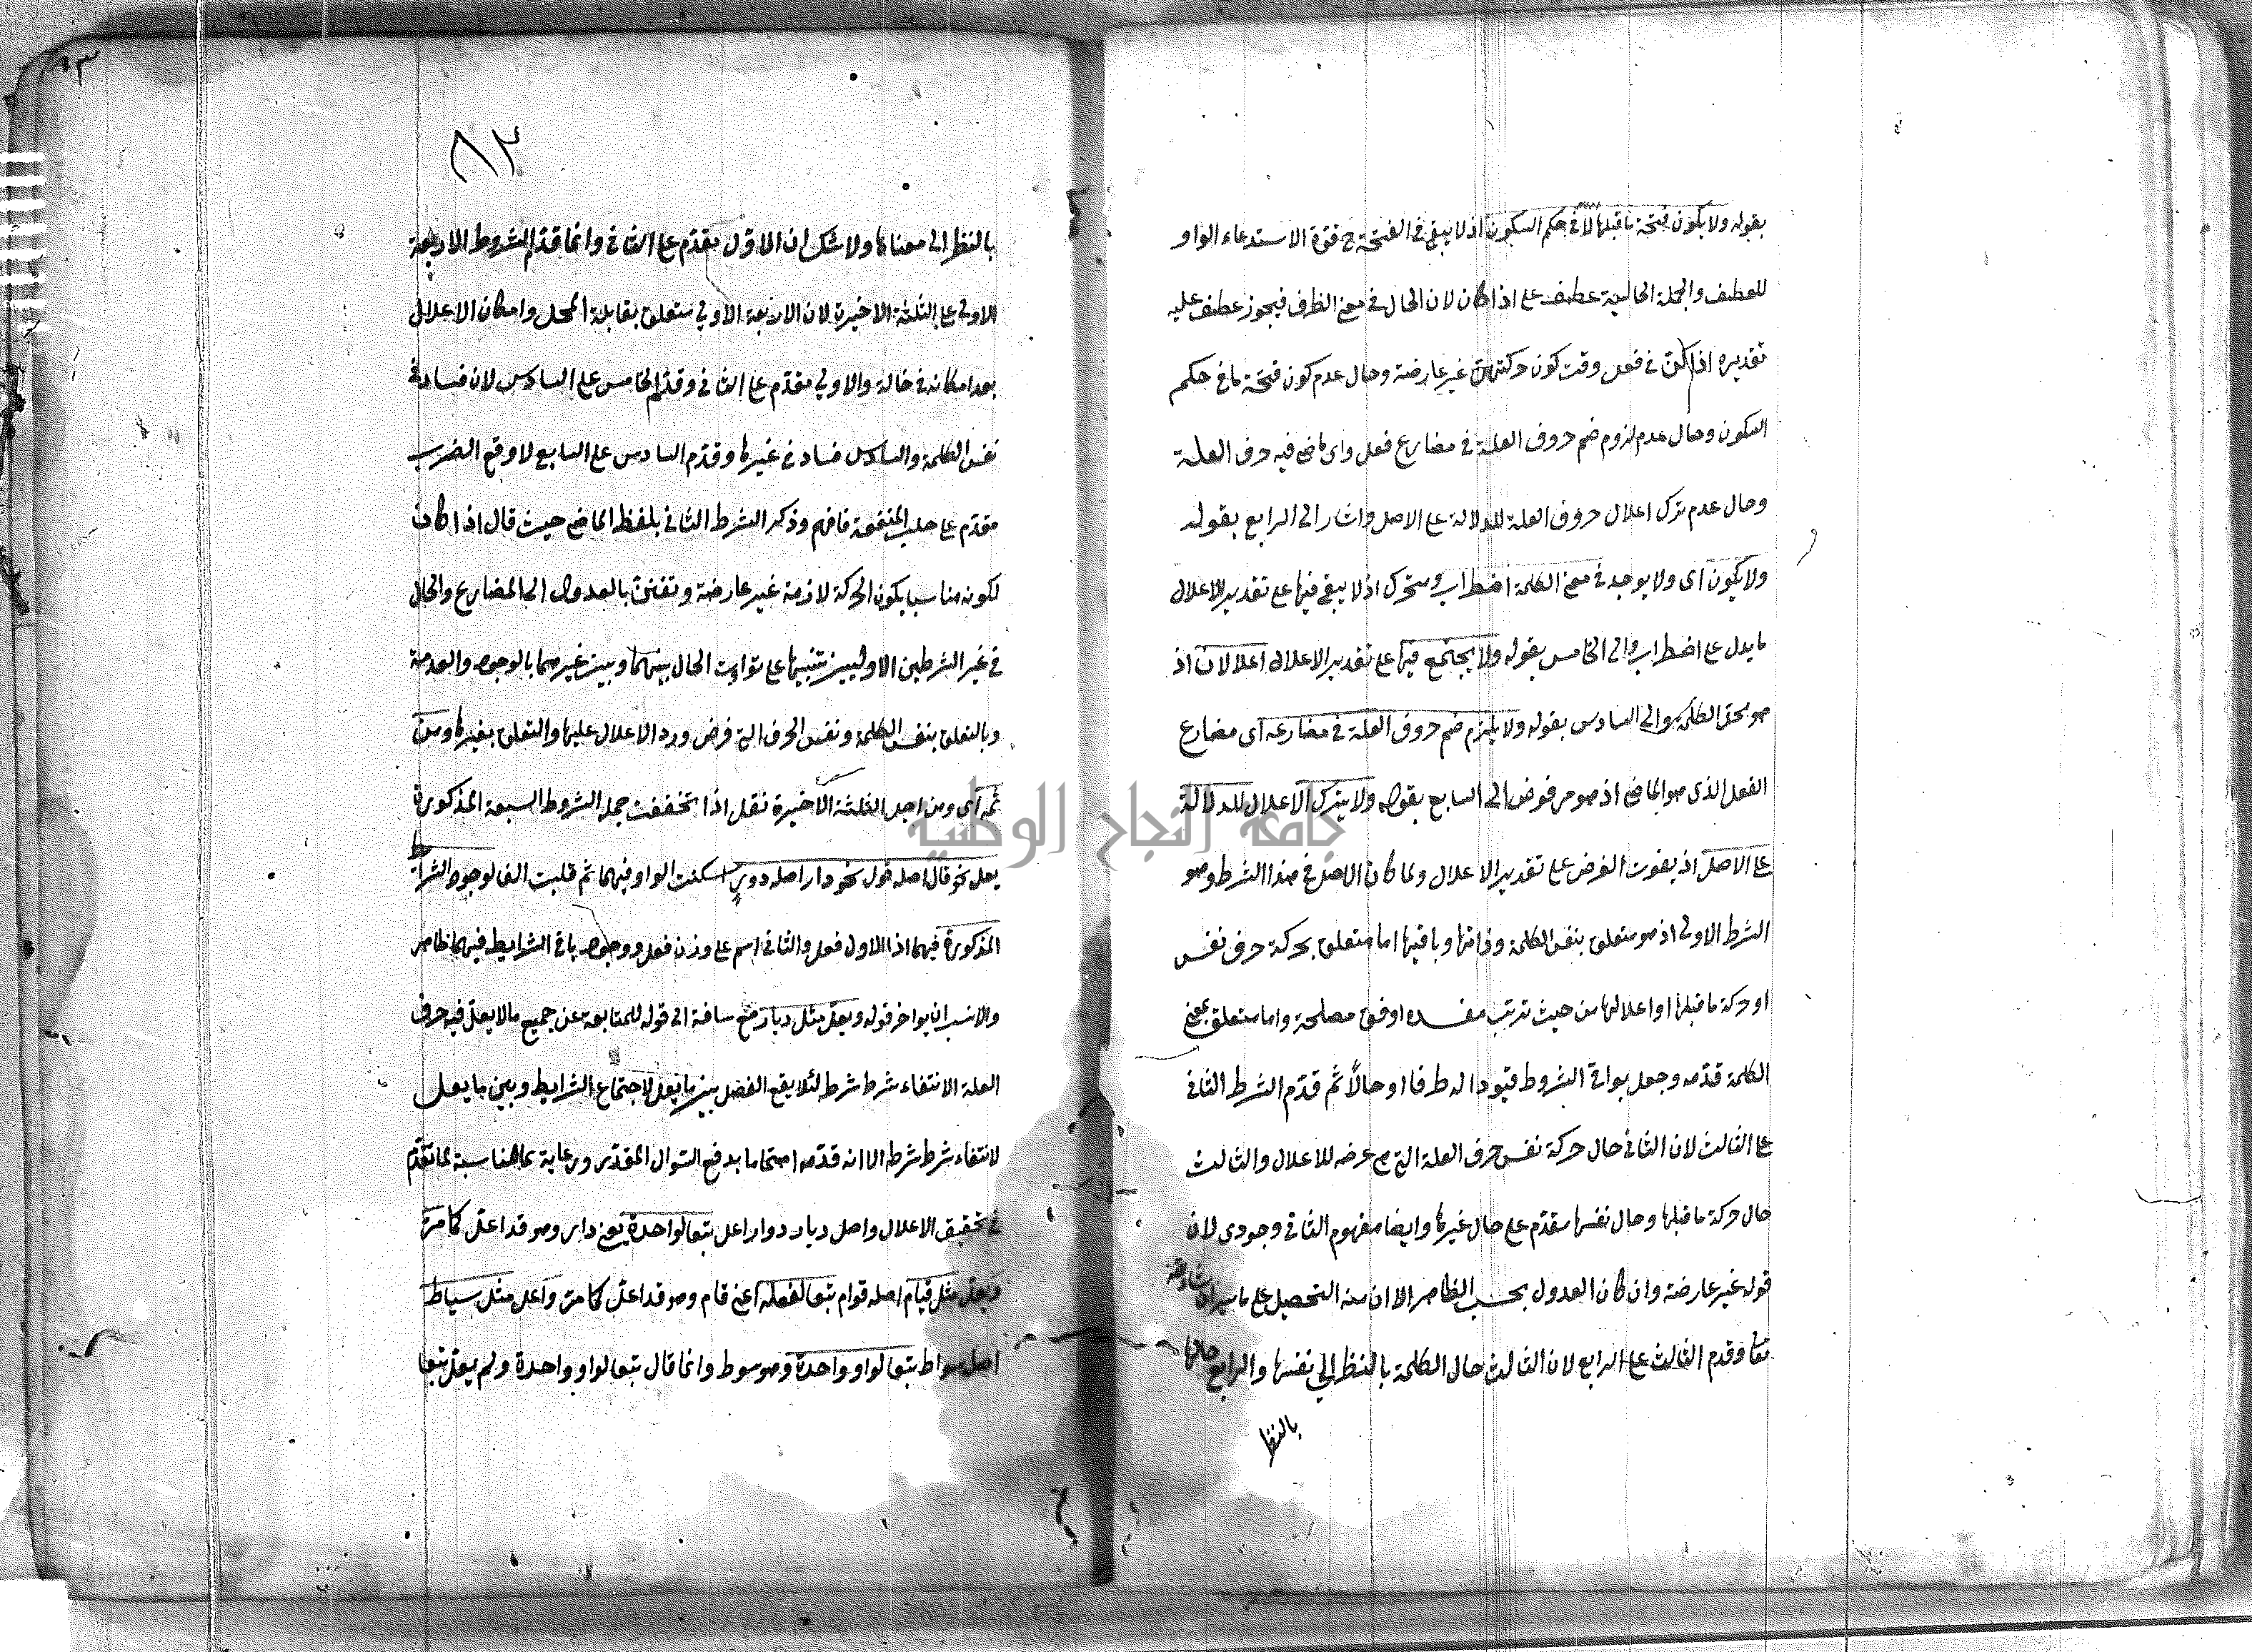 بقوله ولا يكون فتحة ما قبلها لا في حكم السكون اذ لا يبقى في الفتحة ح قوة الاستدعاء الواو
للعطف والجملة الحالية عطف على اذا كان لان الحال في معنى الظرف فيجوز عطف عليه
تقديره اذا كن في فعل وقت كون حركتهن غير عارضة وحال عدم كون فتحة ما في حكم
السكون وحال عدم لزوم ضم حروف العلة في مضارع فعل واى ماضى فيه حرف العلة
وحال عدم ترك اعلال حروف العلة للدلالة على الاصل واشار الى الرابع بقوله
ولا يكون اى ولا يوجد في معنى الكلمة اضطراب وتحرك اذ لا يبقى فيها على تقدير الاعلال
ما يدل على اضطراب والى الخامس بقوله ولا يجتمع فيها على تقدير الاعلال اعلالان اذ
هو بحق الكلمة والى السادس بقوله ولا يلزم ضم حروف العلة في مضارعه اى مضارع
الفعل الذى هو الماضى اذ هو مرفوض الى السابع بقوله ولا يترك الاعلال للدلالة
على الاصل اذ يفوت الغرض على تقدير الاعلال ولما كان الاصل في هذا الشرط وهو
الشرط الاولى اذ هو متعلق بنفس الكلمة وذاتها وباقيها اما متعلق بحركة حرف نفس
او حركة ما قبلها او اعلالها من حيث ترتب مفسده اوفق مصلحة واما متعلق بمعنى
الكلمة قدمه وجعل بواقى الشروط قيودا له طرفا او حالاً ثم قدم الشرط الثانى
على الثالث لان الثانى حال حركة نفس حرف العلة التى هي عرضه للاعلال والثالث
حال حركة ما قبلها وحال نفسها مقدم على حال غيرها وايضا مفهوم الثانى وجودى لان
قوله غير عارضة وان كان العدول بحسب الظاهر الا ان منه التحصيل على ما سيرا ان شاء الله
تعا وقدم الثالث على الرابع لان الثالث حال الكلمة بالنظر الى نفسها والرابع حالها
بالنظر
٨٢
بالنظر الى معناها ولا شك ان الاول مقدم على الثانى وانما قدم الشروط الاربعة
الاولى على الثلثة الاخيرة لان الاربعة الاولى متعلق بقابلة المحل وامكان الاعلال
بعد امكانه في حالة والاولى مقدم على الثانى وقدم الخامس على السادس لان فساد في
نفس الكلمة والسادس فساد في غيرها وقدم السادس على السابع لا وقع الضرب
مقدم على جلب المنفعة فافهم وذكر الشرط الثانى بلفظ الماضى حيث قال اذا كان
لكونه مناسبا بكون الحركة لازمة غير عارضة وتفنن بالعدول الى المضارع والحال
في غير الشرطين الاوليين تنبيها على تواب الحال بينهما وبين غيرهما بالوجود والعدمة
وبالتعلق بنفس الكلمة ونفس الحرف التى فرض ورد الاعلال عليها والتعلق بغيرها ومن
ثمه اى ومن اجل الثلثة الاخيرة نقل اذا تحققت جملة الشروط السبعة المذكورة
يعل نحو قال اصله قول نحو دار اصله دور اسكنت الواو فيهما ثم قلبت الفا لوجود الشرائط
المذكورة فيهما اذ الاول فعل والثانى اسم على وزن فعل ووجود باقى الشرايط فيهما ظاهر
والانسب ان يواخر قوله ويعل مثل ديار مع سافة الى قوله للمتابعة عن جميع مالا يعل فيه حرف
العلة الانتفاء شرط شرط لئلا يقع الفصل بين ما يعل لاجتماع الشرايط وبين ما يعل
لانتفاء شرط شرط الا انه قدمه اهتماما بدفع السوال المقدر ورعاية بمناسبة لما تقدم
في تحقيق الاعلال واصل ديار دوار اعل تبعا لواحدة يعنى دار وهو قد اعل كما مر
ويعل مثل قيام اصله قوام تبعا لفعله اعنى قام وهو قد اعل كما مر واعل مثل سياط
اصله سواط تبعا لواو واحدة وهو سوط وانما قال تبعا لواو واحدة ولم يعل تبعا